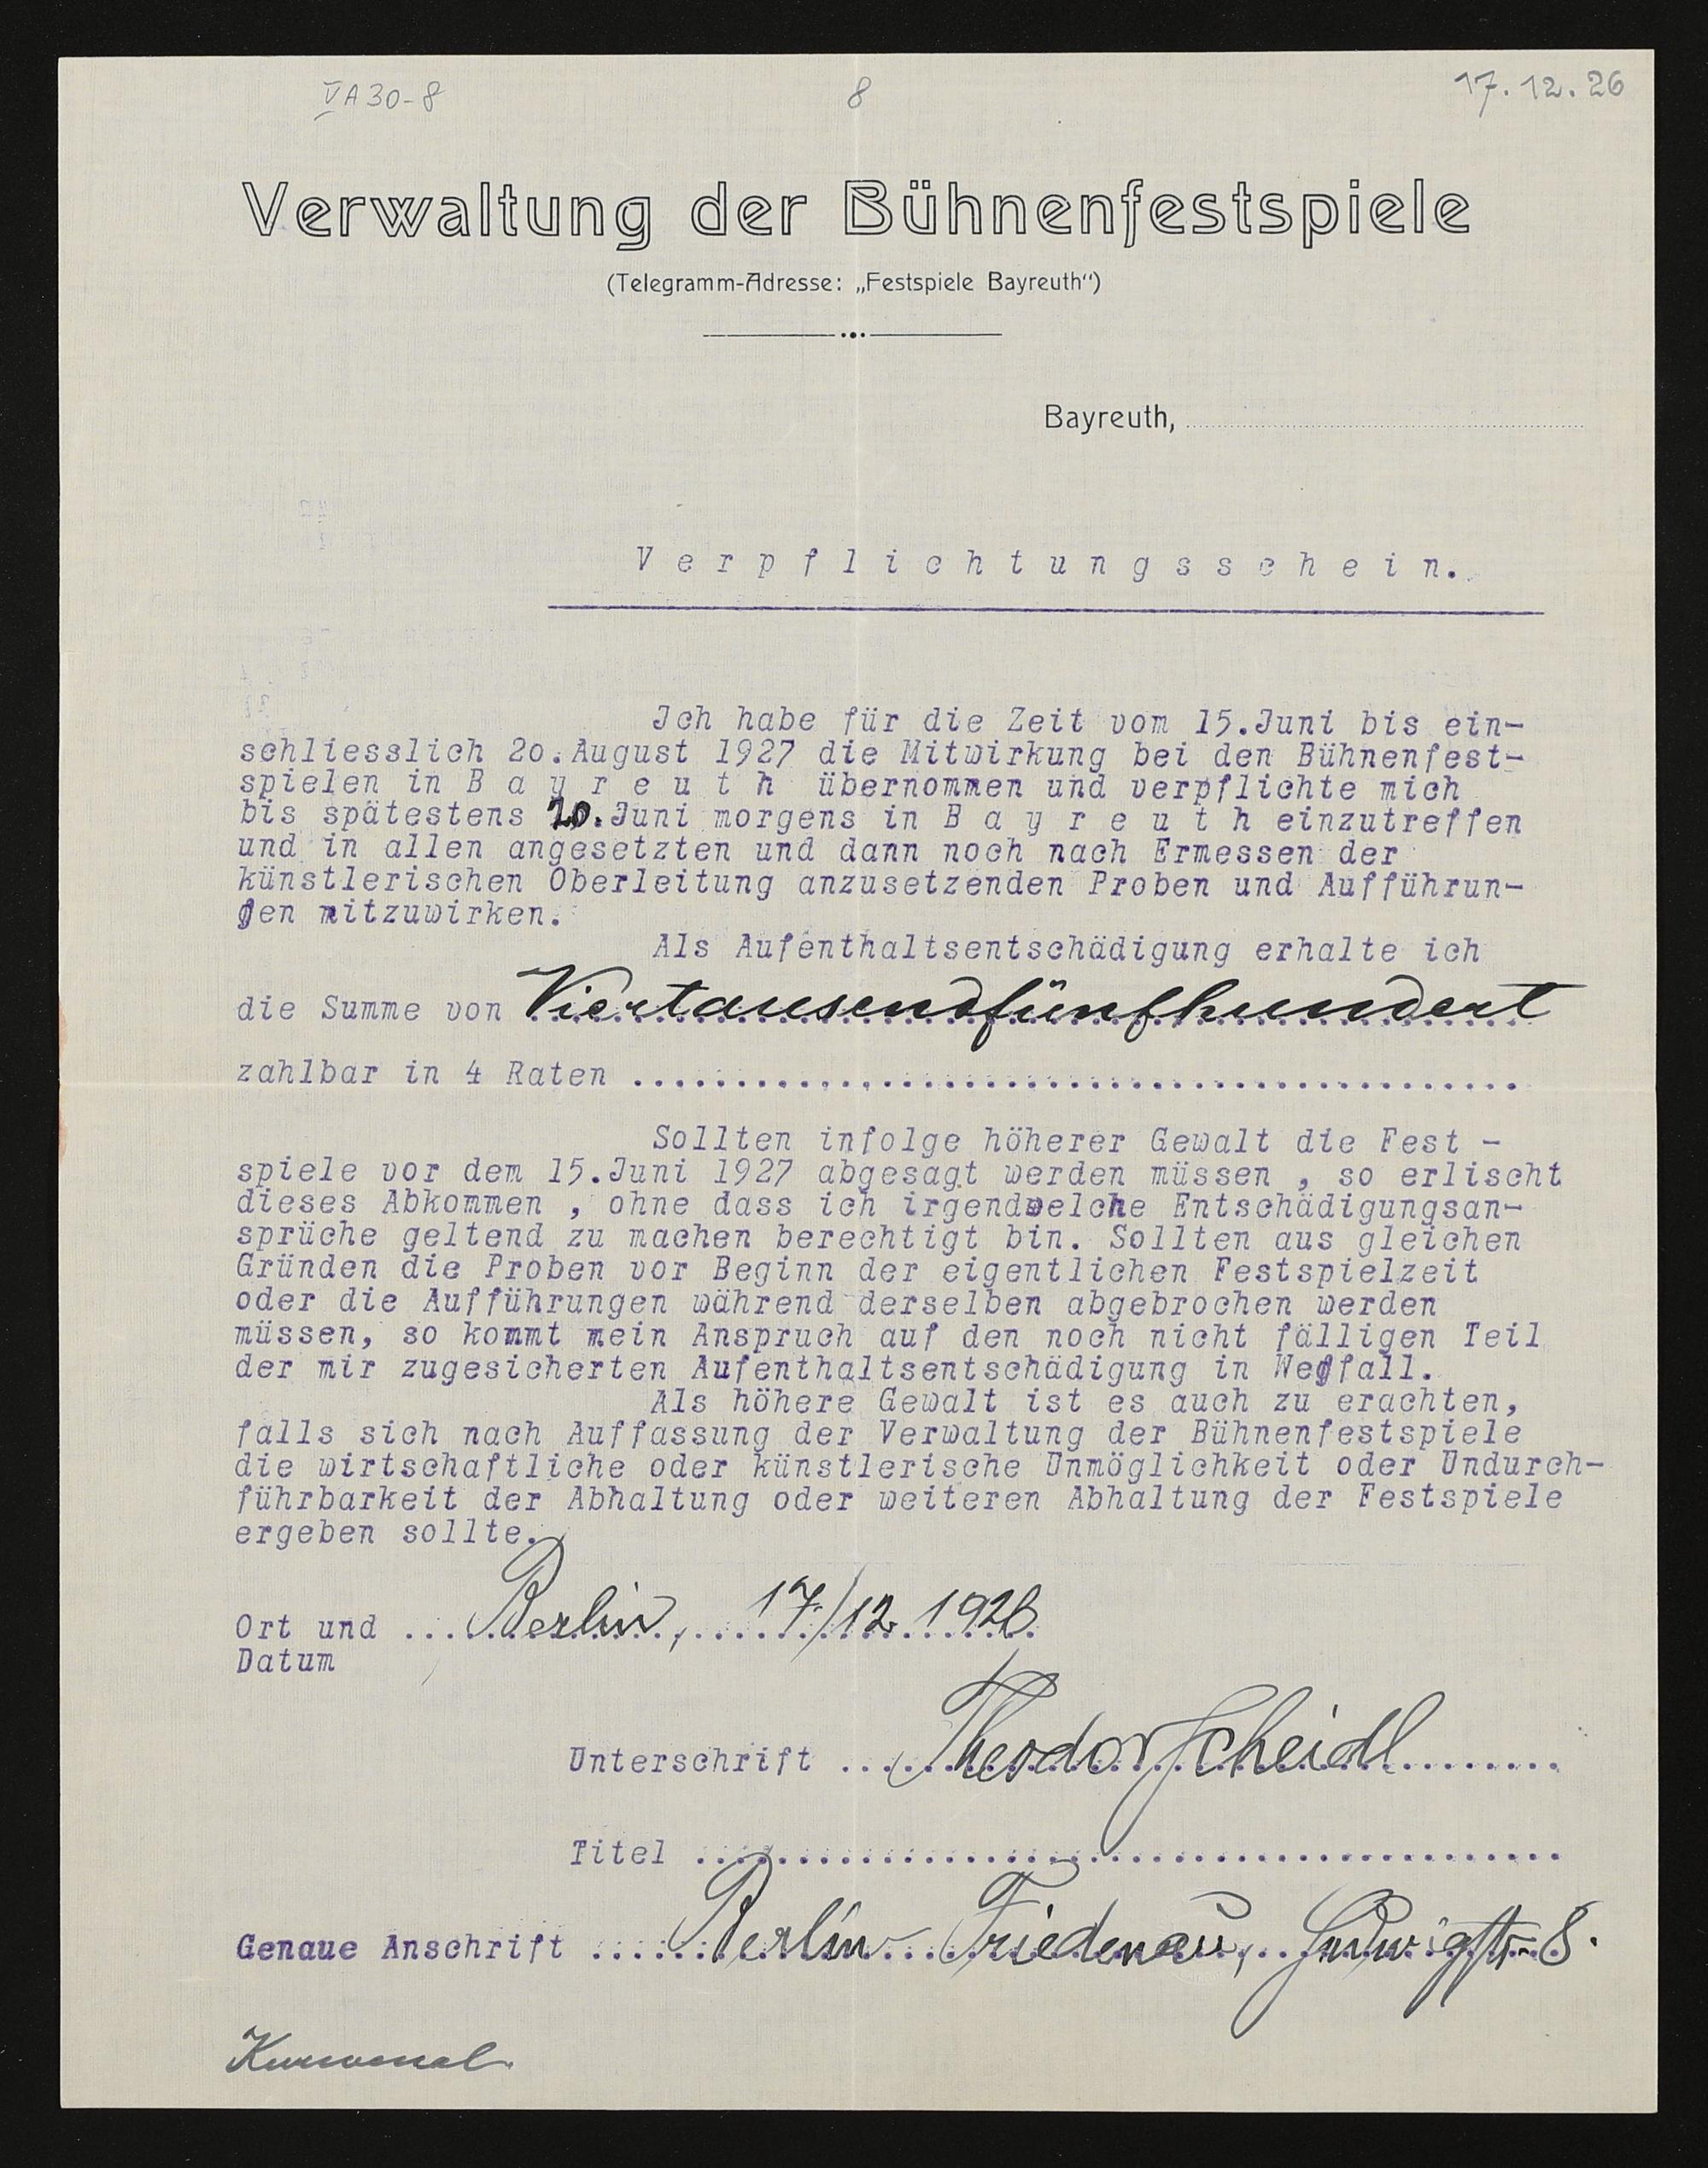 VA30-8 8 17.12.26
Verwaltung der Bühnenfestspiele
(Telegramm-Adresse: „Festspiele Bayreuth“)
Bayreuth,
Verpflichtungsschein.
Ich habe für die Zeit vom 15.Juni bis ein-
schliesslich 2o.August 1927 die Mitwirkung bei den Bühnenfest-
spielen in B a y r e u t h übernommen und verpflichte mich
bis spätestens 20.Juni morgens in B a y r e u t h einzutreffen
und in allen angesetzten und dann noch nach Ermessen der
künstlerischen Oberleitung anzusetzenden Proben und Aufführun-
gen mitzuwirken.
Als Aufenthaltsentschädigung erhalte ich
die Summe von Viertausendfünfhundert
zahlbar in 4 Raten ...........................................
Sollten infolge höherer Gewalt die Fest -
spiele vor dem 15.Juni 1927 abgesagt werden müssen , so erlischt
dieses Abkommen , ohne dass ich irgendwelche Entschädigungsan-
sprüche geltend zu machen berechtigt bin. Sollten aus gleichen
Gründen die Proben vor Beginn der eigentlichen Festspielzeit
oder die Aufführungen während derselben abgebrochen werden
müssen, so kommt mein Anspruch auf den noch nicht fälligen Teil
der mir zugesicherten Aufenthaltsentschädigung in Wegfall.
Als höhere Gewalt ist es auch zu erachten,
falls sich nach Auffassung der Verwaltung der Bühnenfestspiele
die wirtschaftliche oder künstlerische Unmöglichkeit oder Undurch-
führbarkeit der Abhaltung oder weiteren Abhaltung der Festspiele
ergeben sollte.
Ort und ... Berlin, 17/12 1926
Datum
Unterschrift ... Theodor Scheidl
Titel ..........................................
Genaue Anschrift ..... Berlin Friedenau, Ludwigstr 8.
Kurwenal